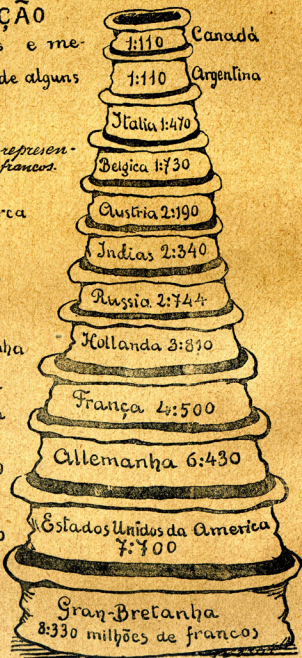 ÇÃO
s e me-
de alguns
represen-
francos.
rca
nha
1:110 Canadá
1:110 Argentina
Italia 1:470
Belgica 1:730
Austria 2:190
Indias 2:340
Russia 2:744
Hollanda 3:810
França 4:500
Allemanha 6:430
Estados Unidos da America
7:700
Gran-Bretanha
8:330 milhões de francos